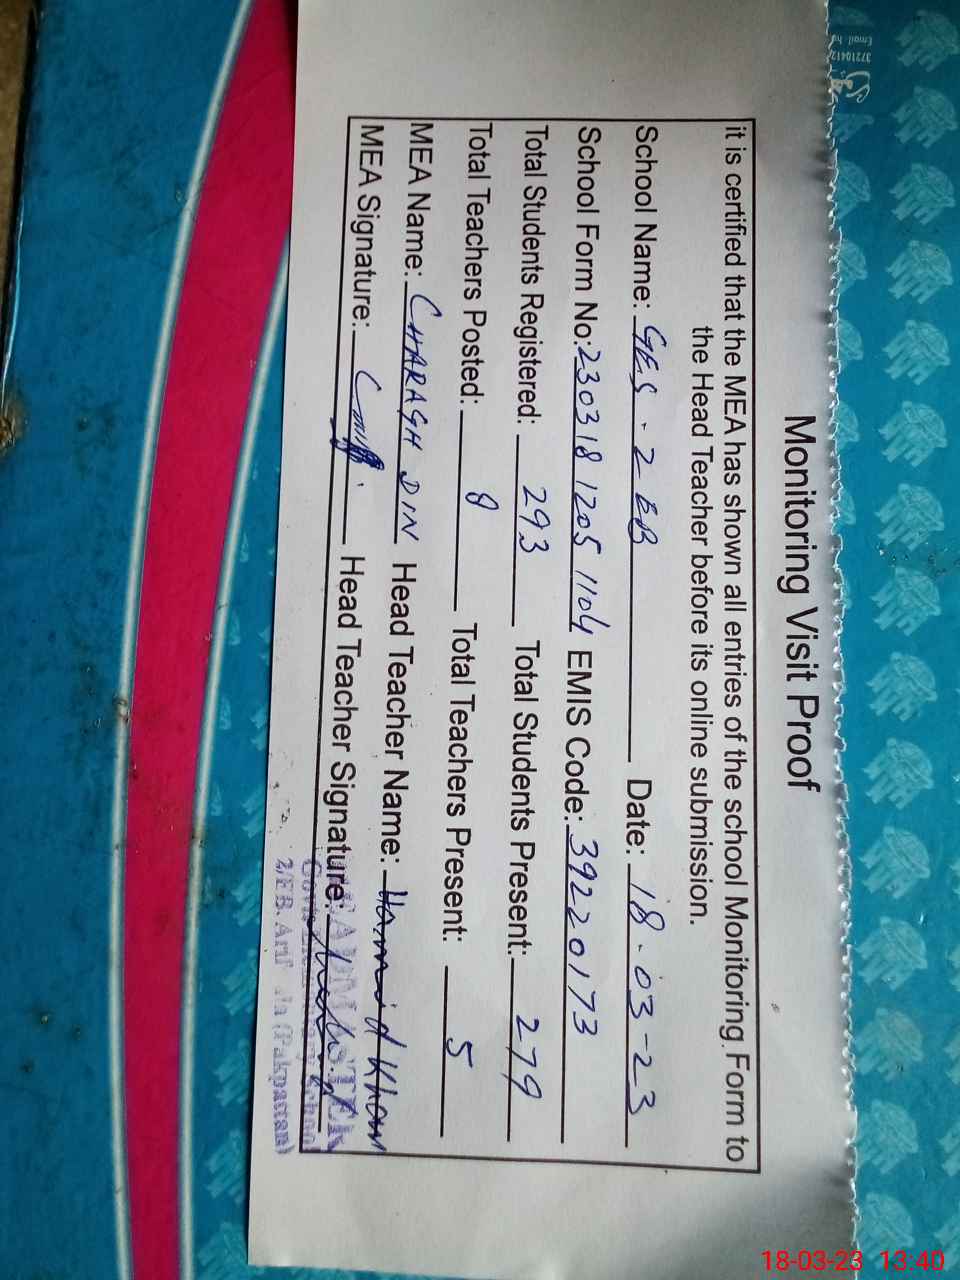 Monitoring Visit Proof
it is certified that the MEA has shown all entries of the school Monitoring Form to
the Head Teacher before its online submission.
School Name: GES. 2 EB Date: 18.03-23
School Form No: 230318 1205 1104 EMIS Code: 39220173
Total Students Registered: 293 Total Students Present: 279
Total Teachers Posted: 8 Total Teachers Present: 5
MEA Name: CHARAGH DIN Head Teacher Name: Hamid Khan
MEA Signature: Head Teacher Signature:
2/EB. Arif (Pakpattan)
18-03-23 13:40